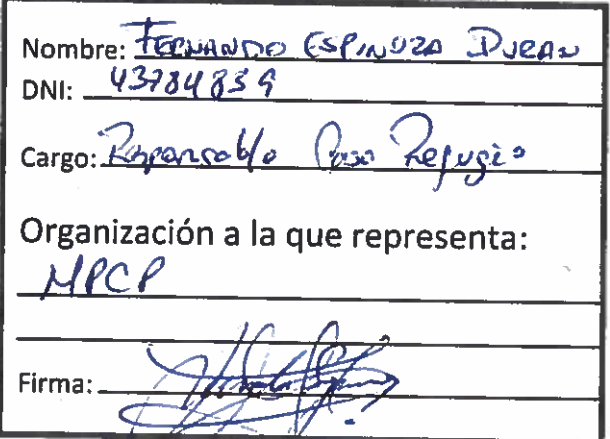 Nombre: FERNANDO ESPINOZA DURAN
DNI: 43784839
Cargo: Responsable Casa Refugio
Organización a la que representa:
MPCP
Firma: